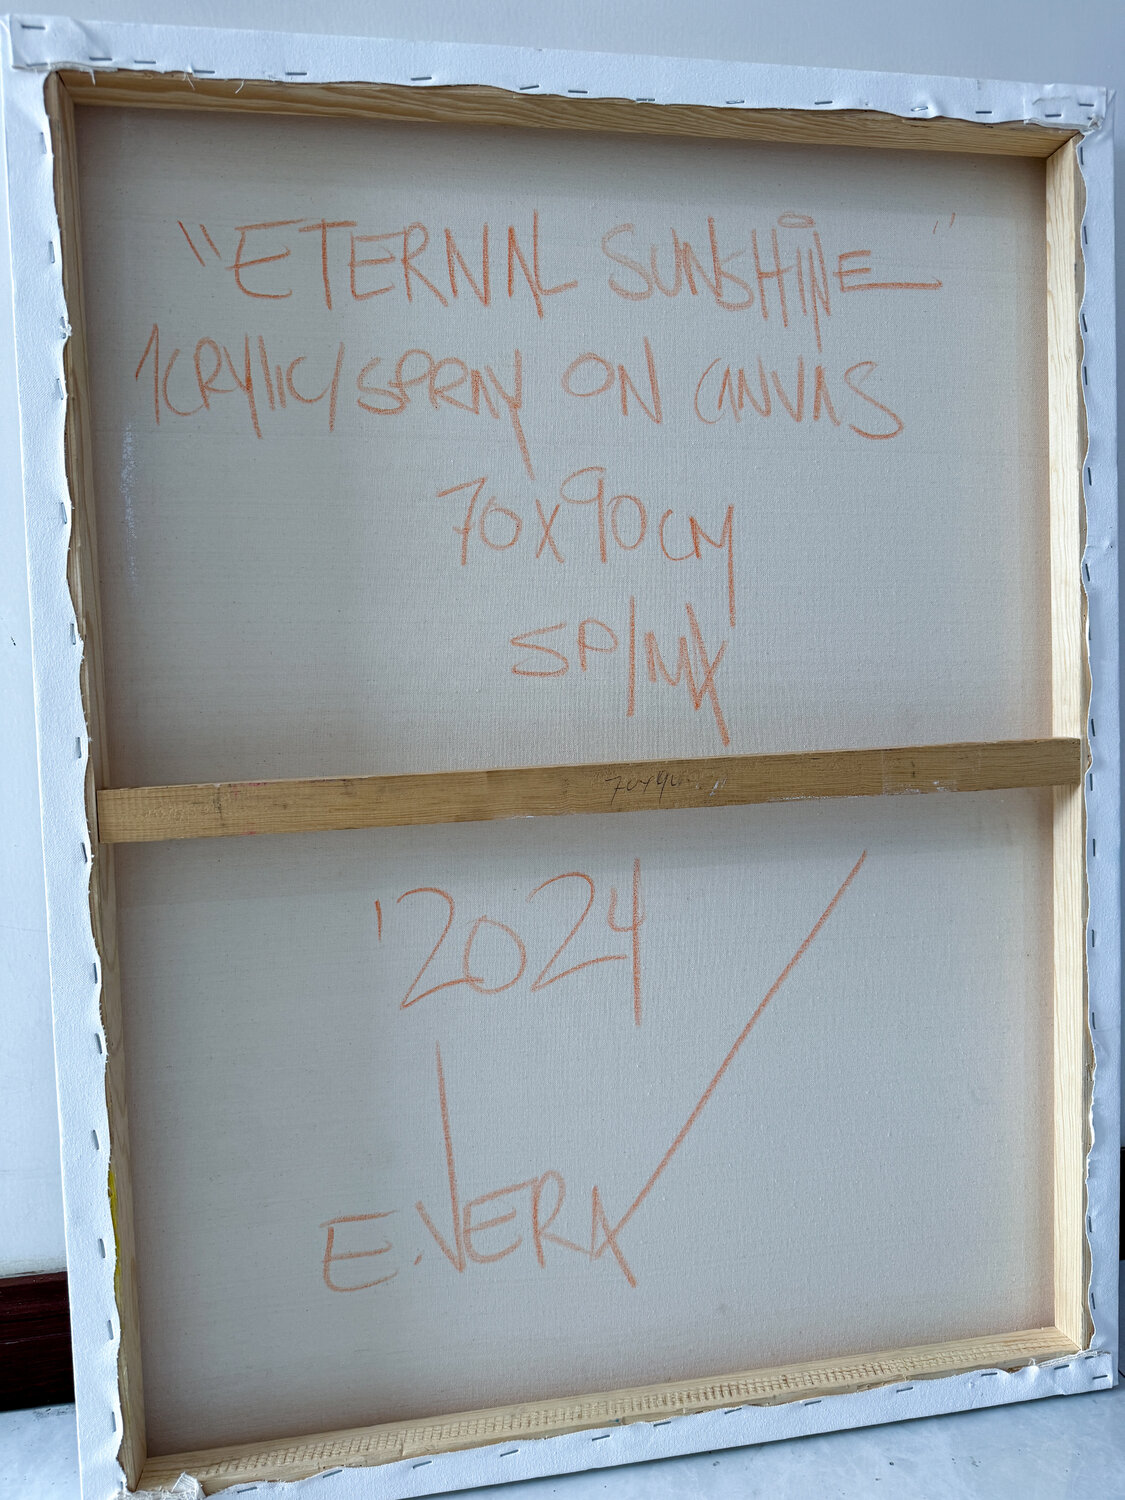 "ETERNAL SUNSHINE"
ACRYlIC/SPRAY ON CANVAS
70x90CM
SP/MX
70x90
'2024
E.VERA